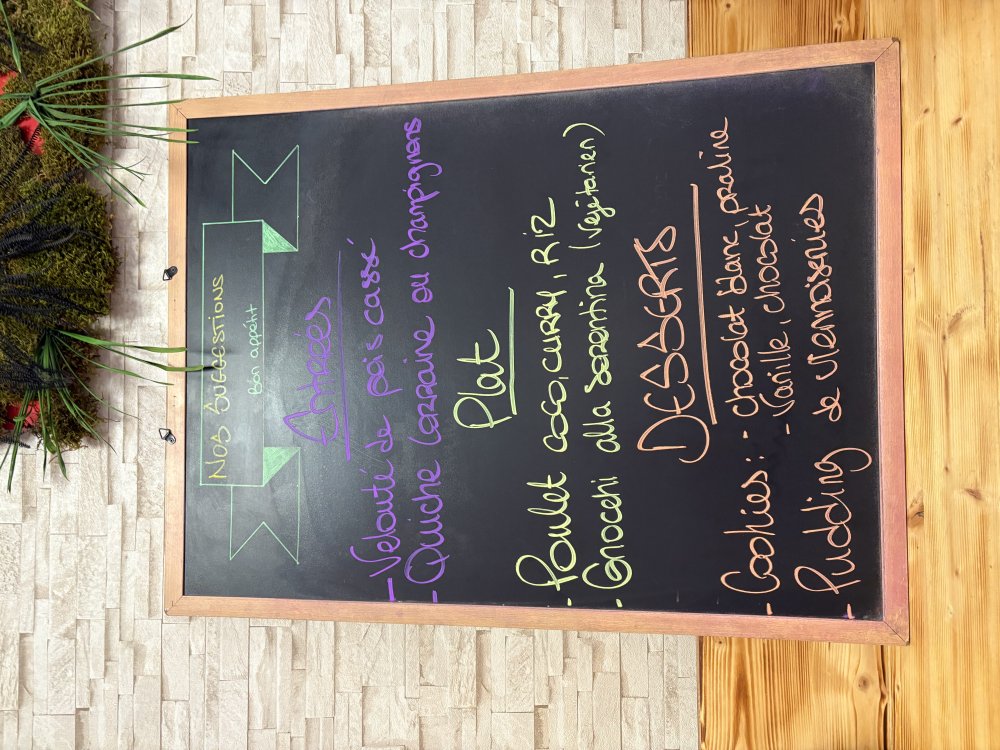 NOS SUGGESTIONS
Bon appétit
Entrées
- Velouté de pois cassé
- Quiche Lorraine ou champignons
Plat
- Poulet coco, curry, RIZ
- Gnocchi alla sorentina (végétarien)
DESSERTS
- Cookies : - chocolat blanc, praline
- Vanille, chocolat
- Pudding de viennoiseries